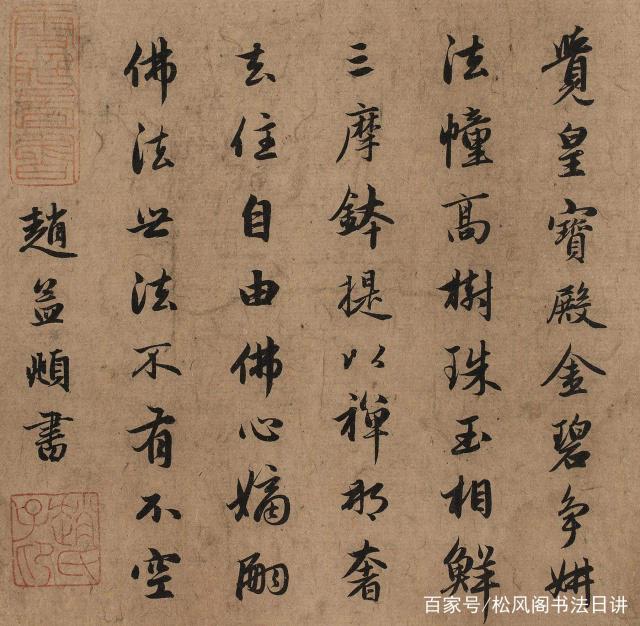 覺皇寶殿金碧争妍
法幢高樹珠玉相鮮
三摩鉢提以禪那奢
去住自由佛心嫡嗣
佛法無法不有不空
趙孟頫書
趙氏子昂
百家号/松风阁书法日讲